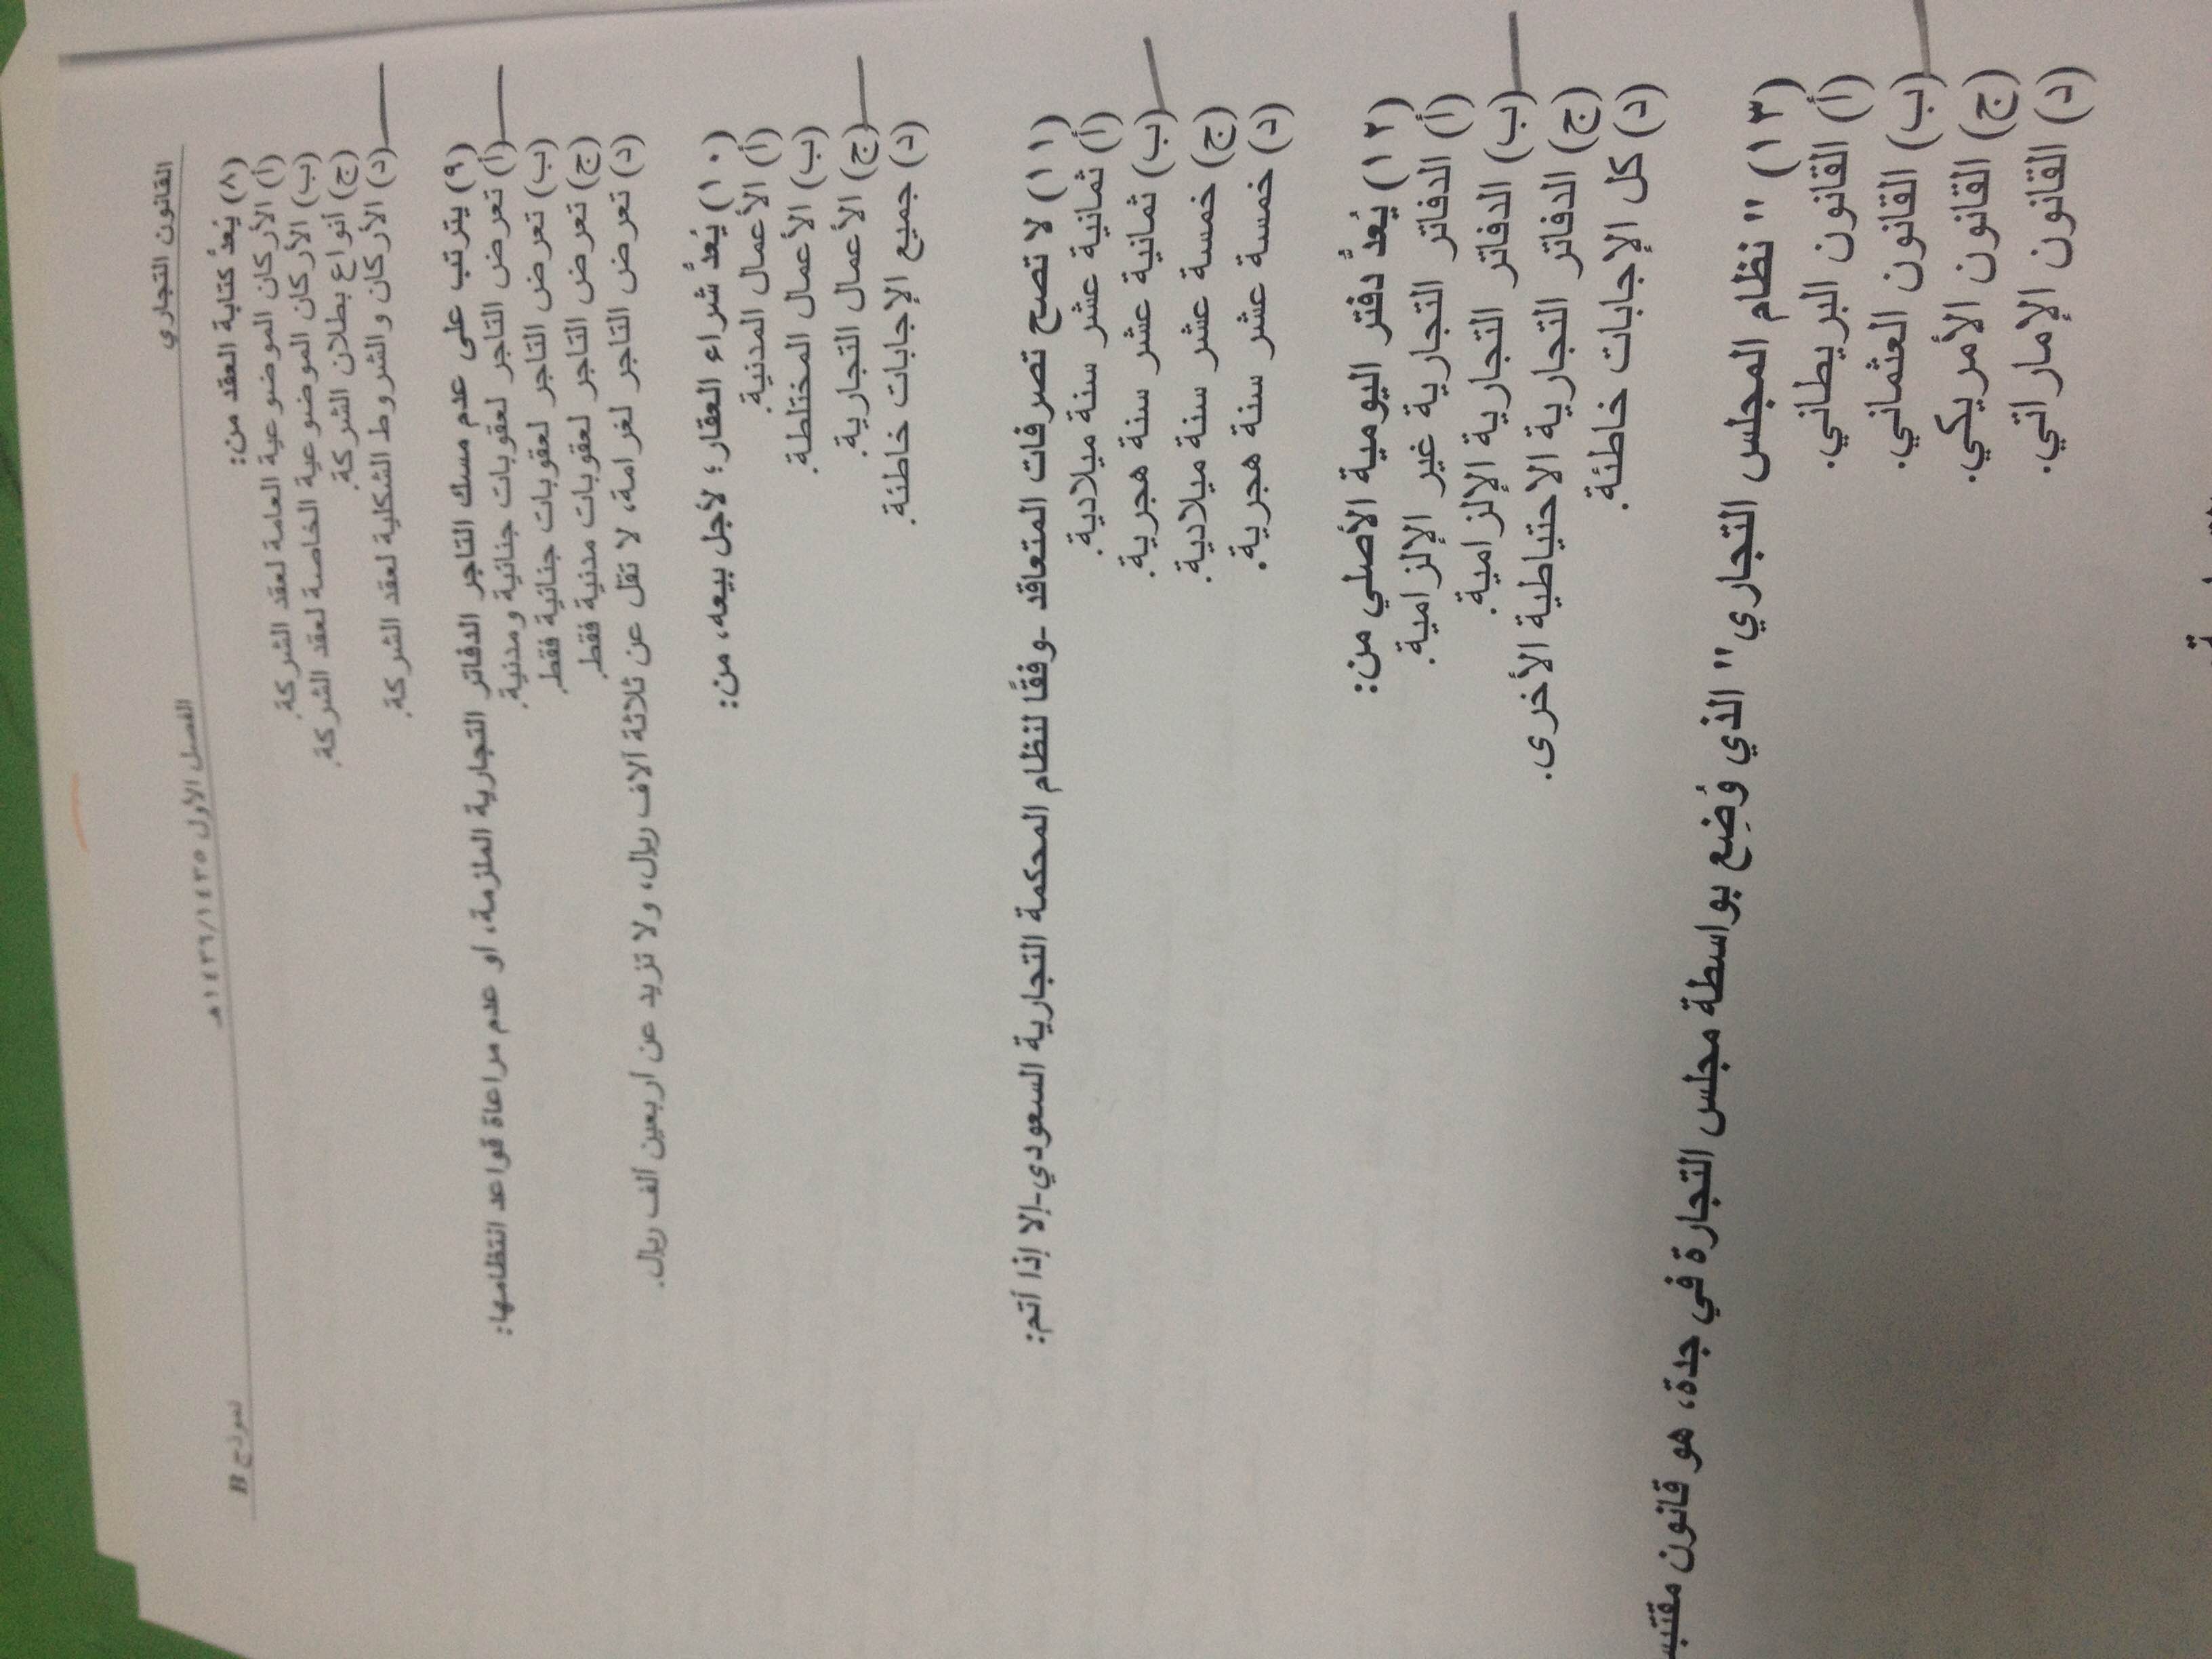 القانون التجاري الفصل الأول ١٤٣٥/١٤٣٦هـ نموذج B
(٨) يُعدُّ كتابة العقد من:
(أ) الأركان الموضوعية العامة لعقد الشركة.
(ب) الأركان الموضوعية الخاصة لعقد الشركة.
(ج) أنواع بطلان الشركة.
(د) الأركان والشروط الشكلية لعقد الشركة.
(٩) يترتب على عدم مسك التاجر الدفاتر التجارية الملزمة، أو عدم مراعاة قواعد انتظامها:
(أ) تعرض التاجر لعقوبات جنائية ومدنية.
(ب) تعرض التاجر لعقوبات جنائية فقط.
(ج) تعرض التاجر لعقوبات مدنية فقط.
(د) تعرض التاجر لغرامة، لا تقل عن ثلاثة آلاف ريال، ولا تزيد عن أربعين ألف ريال.
(١٠) يُعدُّ شراء العقار؛ لأجل بيعه، من:
(أ) الأعمال المدنية.
(ب) الأعمال المختلطة.
(ج) الأعمال التجارية.
(د) جميع الإجابات خاطئة.
(١١) لا تصح تصرفات المتعاقد -وفقًا لنظام المحكمة التجارية السعودي-إلا إذا أتم:
(أ) ثمانية عشر سنة ميلادية.
(ب) ثمانية عشر سنة هجرية.
(ج) خمسة عشر سنة ميلادية.
(د) خمسة عشر سنة هجرية.
(١٢) يُعدُّ دفتر اليومية الأصلي من:
(أ) الدفاتر التجارية غير الإلزامية.
(ب) الدفاتر التجارية الإلزامية.
(ج) الدفاتر التجارية الاحتياطية الأخرى.
(د) كل الإجابات خاطئة.
(١٣) " نظام المجلس التجاري" الذي وُضِع بواسطة مجلس التجارة في جدة، هو قانون
(أ) القانون البريطاني.
(ب) القانون العثماني.
(ج) القانون الأمريكي.
(د) القانون الإماراتي.